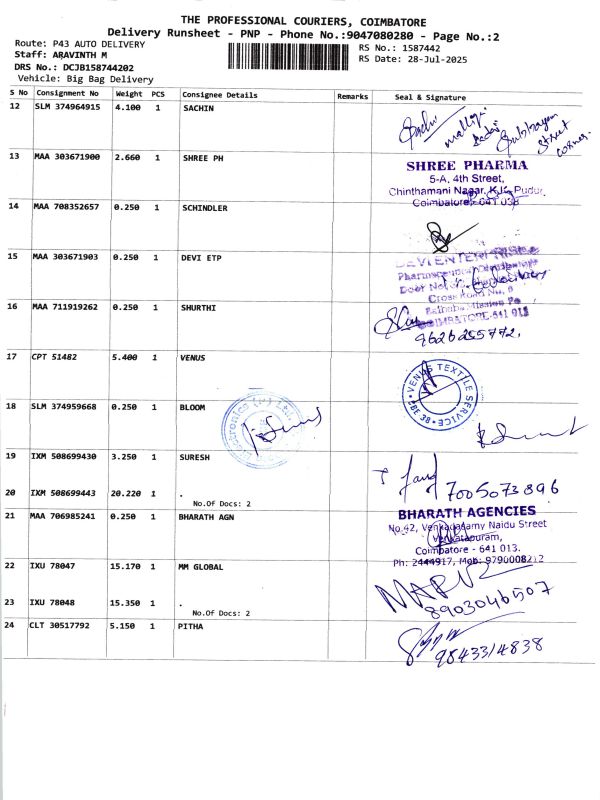 THE PROFESSIONAL COURIERS, COIMBATORE
Delivery Runsheet - PNP - Phone No.:9047080280 - Page No.:2
Route: P43 AUTO DELIVERY
Staff: ARAVINTH M
RS No.: 1587442
DRS No.: DCJB158744202
RS Date: 28-Jul-2025
Vehicle: Big Bag Delivery
S No Consignment No Weight PCS Consignee Details Remarks Seal & Signature
12 SLM 374964915 4.100 1 SACHIN
Street
corner
13 MAA 303671900 2.660 1 SHREE PH
SHREE PHARMA
5-A, 4th Street,
Chinthamani Nagar, K.K. Pudur,
Coimbatore - 641 038
14 MAA 708352657 0.250 1 SCHINDLER
15 MAA 303671903 0.250 1 DEVI ETP
DEVI ENTERPRISE
Cross Road No. 9
Saibaba Mission Po
COIMBATORE-641 011
16 MAA 711919262 0.250 1 SHURTHI
9626255772
17 CPT 51482 5.400 1 VENUS
VENUS TEXTILE SERVICE
CBE 38
18 SLM 374959668 0.250 1 BLOOM
19 IXM 508699430 3.250 1 SURESH
7005073896
20 IXM 508699443 20.220 1 .
No.Of Docs: 2
21 MAA 706985241 0.250 1 BHARATH AGN
BHARATH AGENCIES
No.42, Venkadasamy Naidu Street
Venkatapuram,
Coimbatore - 641 013.
Ph: 2444917, Mob: 9790008212
22 IXU 78047 15.170 1 MM GLOBAL
8903046507
23 IXU 78048 15.350 1 .
No.Of Docs: 2
24 CLT 30517792 5.150 1 PITHA
9843314838